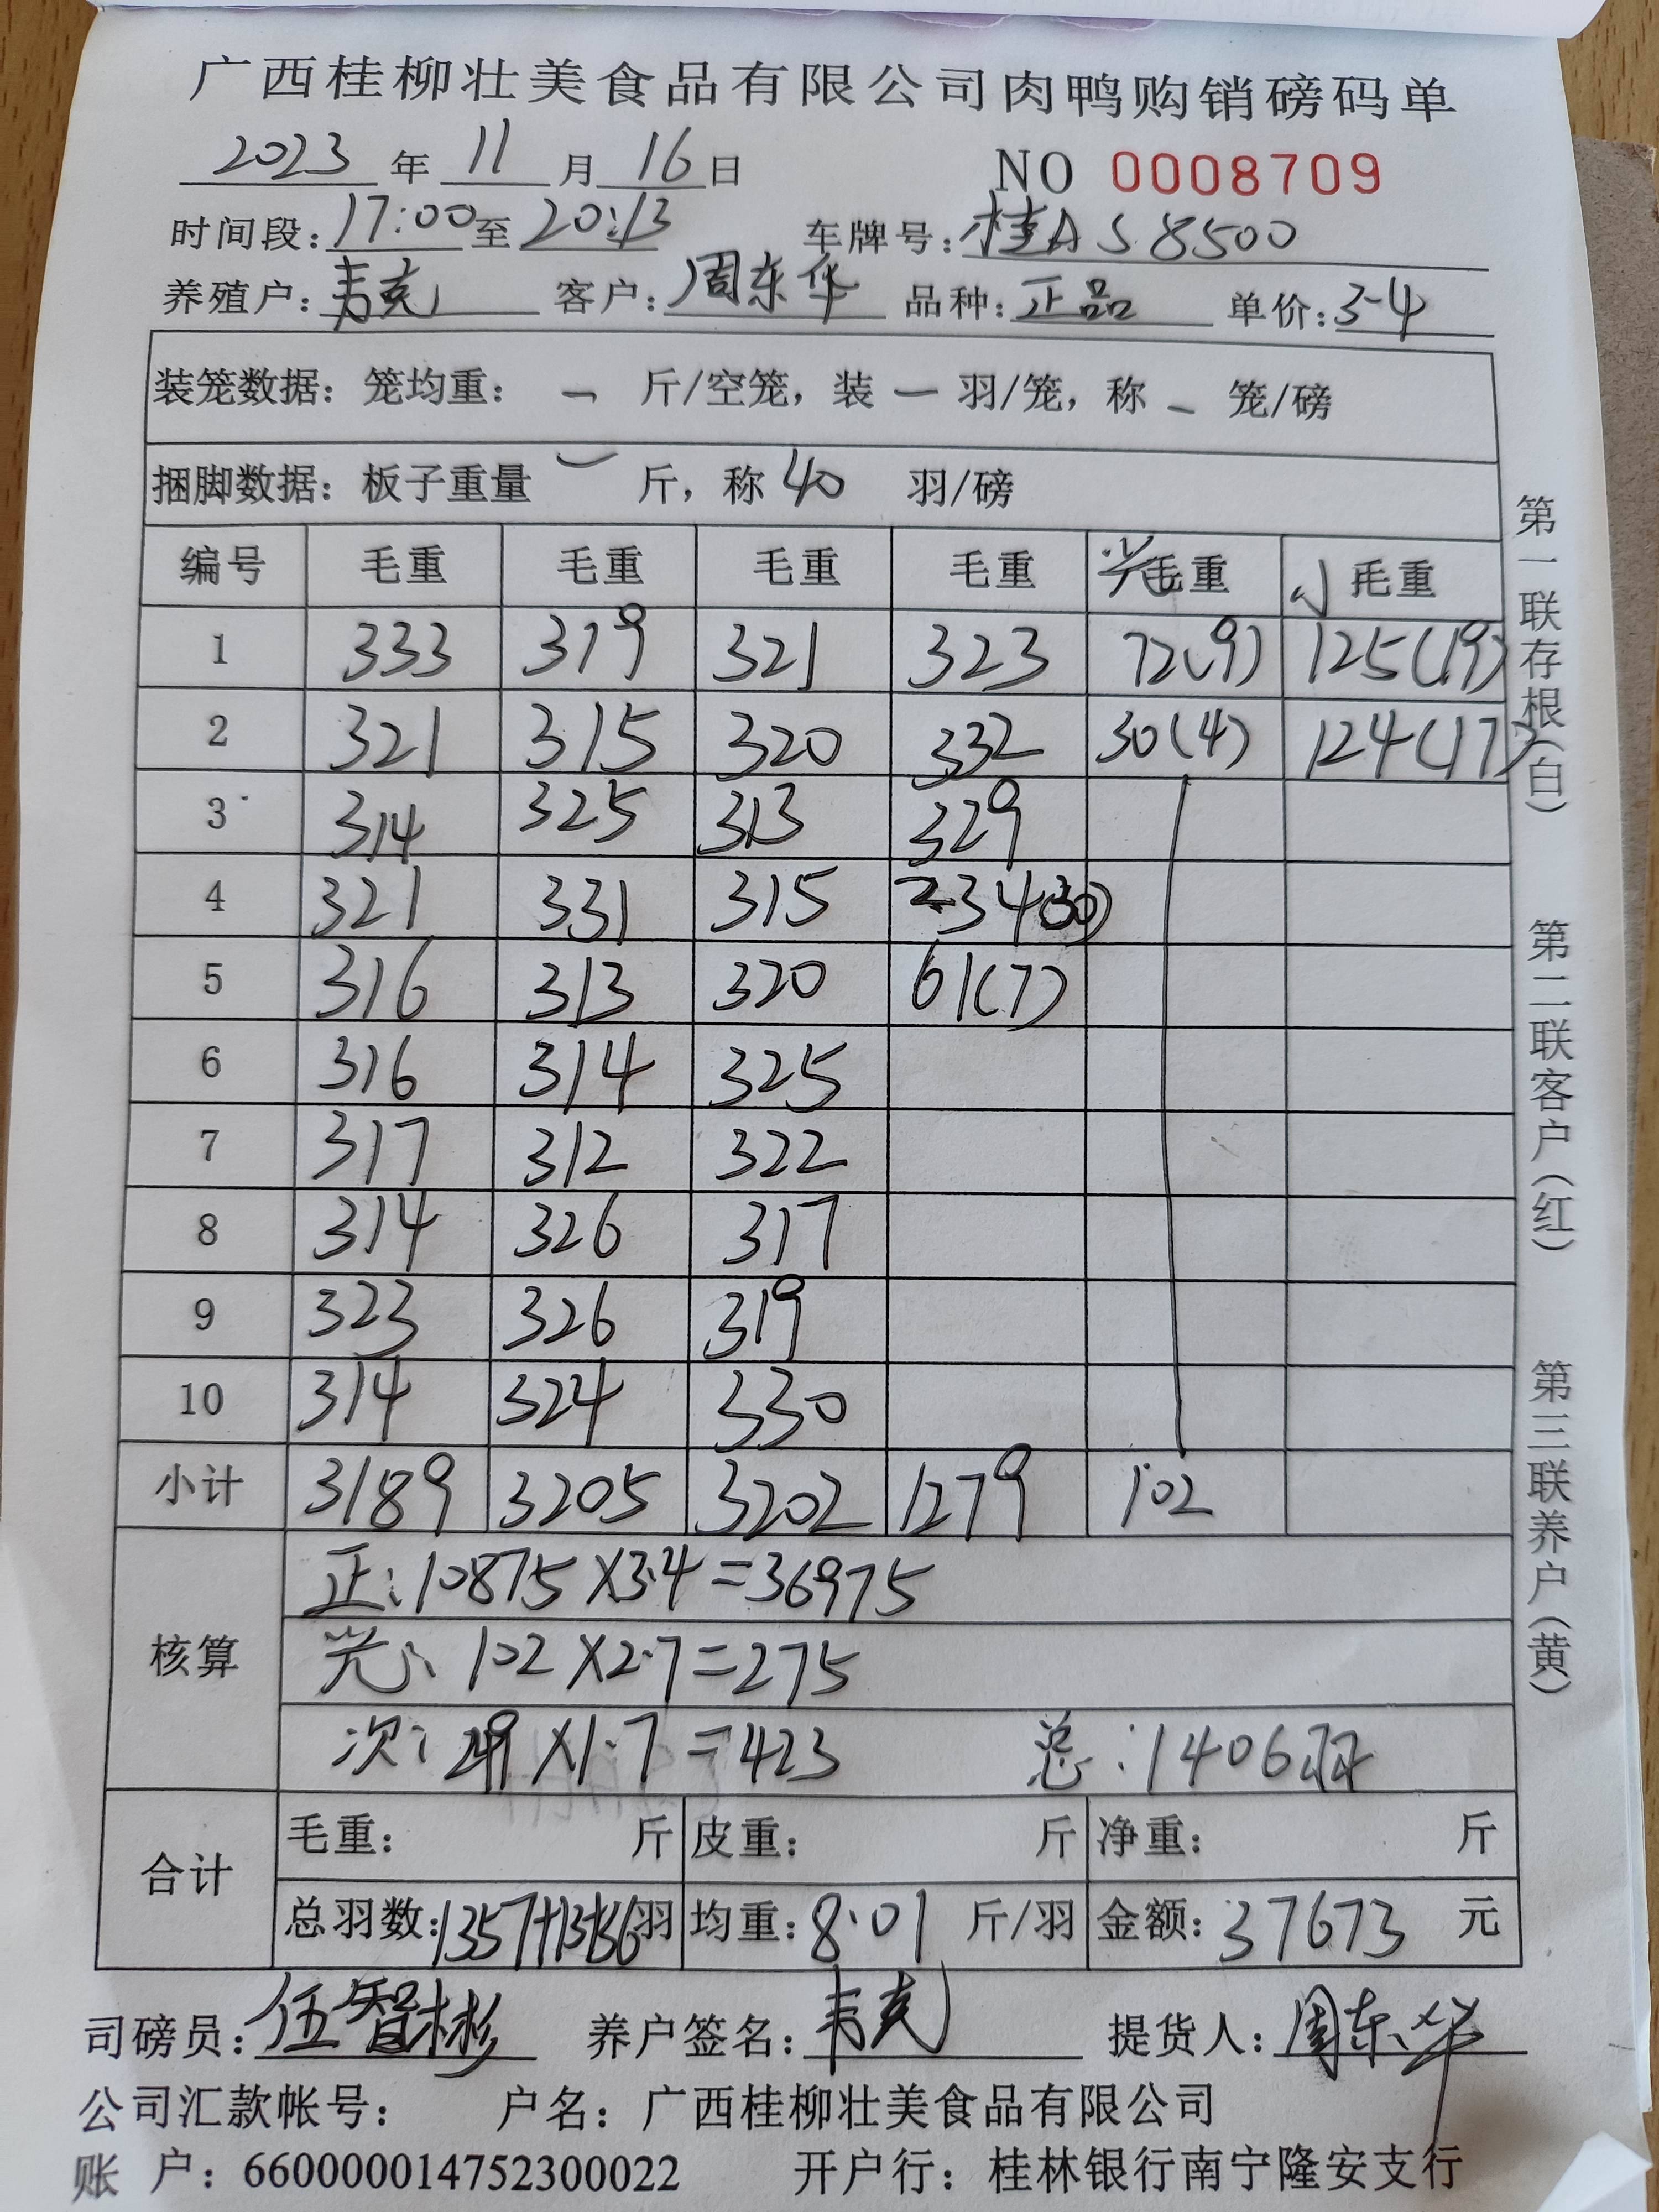 广西桂柳壮美食品有限公司肉鸭购销磅码单
2023 年 11 月 16 日 NO 0008709
时间段：17:00 至 20:13 车牌号：桂A S 8500
养殖户：韦克 客户：周东华 品种：正品 单价：3-4
装笼数据：笼均重： - 斤/空笼，装 - 羽/笼，称 - 笼/磅
捆脚数据：板子重量 - 斤，称 40 羽/磅
编号 毛重 毛重 毛重 毛重 毛重 小 毛重
1 333 319 321 323 72(9) 125(19)
2 321 315 320 332 30(4) 124(17)
3 314 325 313 329
4 321 331 315 234(30)
5 316 313 320 61(7)
6 316 314 325
7 317 312 322
8 314 326 317
9 323 326 319
10 314 324 330
小计 3189 3205 3202 1279 102
核算
正：10875×3.4=36975
102×2.7=275
次：249×1.7=423 总：1406羽
合计
毛重： 斤 皮重： 斤 净重： 斤
总羽数：1357+13+36羽 均重：8.01 斤/羽 金额：37673 元
司磅员：伍智彬 养户签名：韦克 提货人：周东华
公司汇款帐号： 户名：广西桂柳壮美食品有限公司
账 户：660000014752300022 开户行：桂林银行南宁隆安支行
第一联存根（白）
第二联客户（红）
第三联养户（黄）